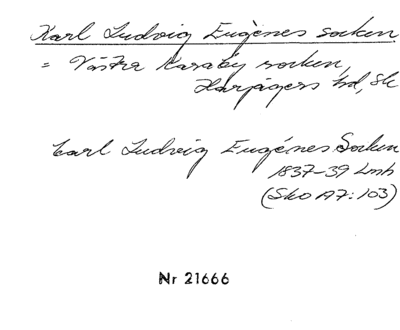 Karl Ludvig Eugènes socken
= Västra Karaby socken,
Harjagers hd, Sk
Carl Ludvig Eugénes Socken
1837-39 Lmh
(Sko A7:103)
Nr 21666